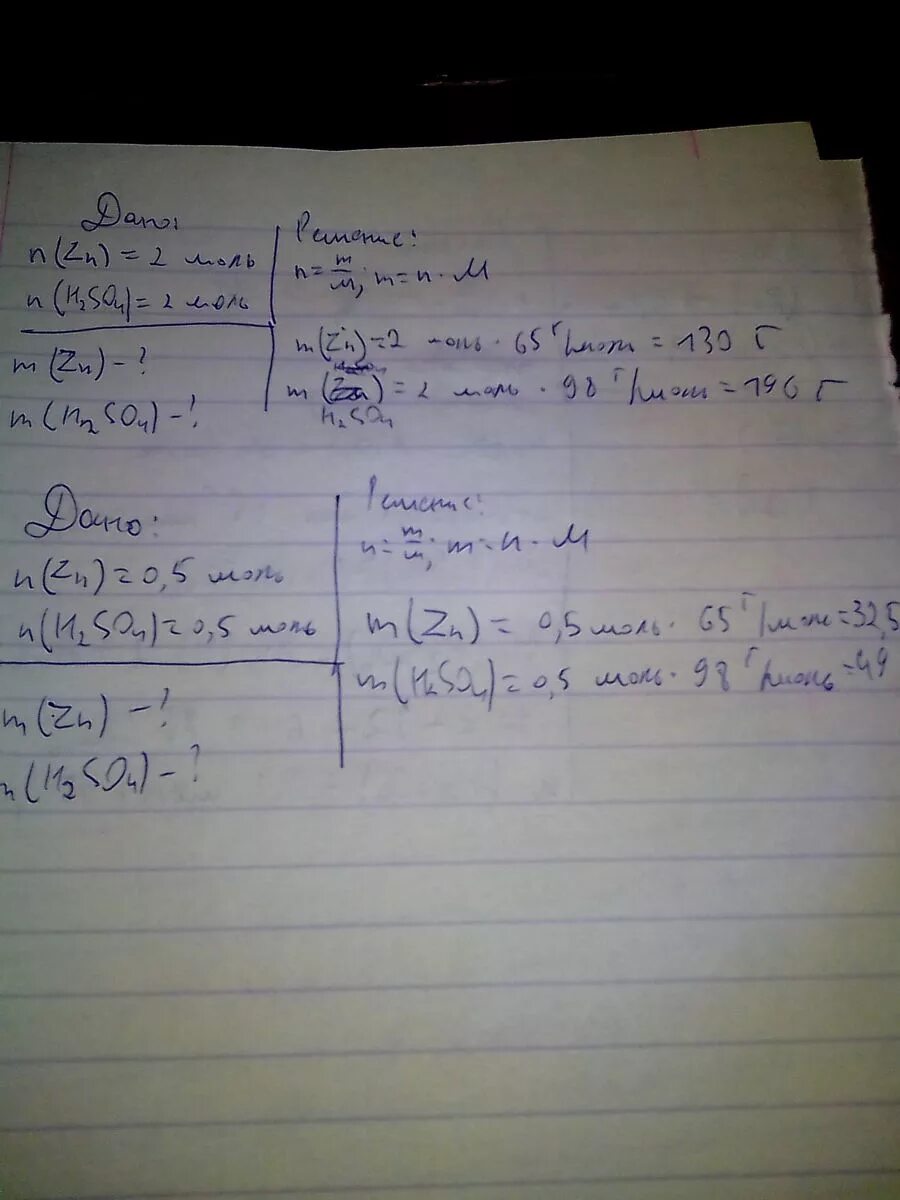 Дано:
n(Zn) = 2 моль
n(H₂SO₄) = 2 моль
m(Zn) - ?
m(H₂SO₄) - ?
Решение:
n = m/M; m = n · M
m(Zn) = 2 моль · 65 г/моль = 130 г
m(H₂SO₄) = 2 моль · 98 г/моль = 196 г
Дано:
n(Zn) = 0,5 моль
n(H₂SO₄) = 0,5 моль
m(Zn) - ?
n(H₂SO₄) - ?
Решение:
n = m/M; m = n · M
m(Zn) = 0,5 моль · 65 г/моль = 32,5
m(H₂SO₄) = 0,5 моль · 98 г/моль = 49